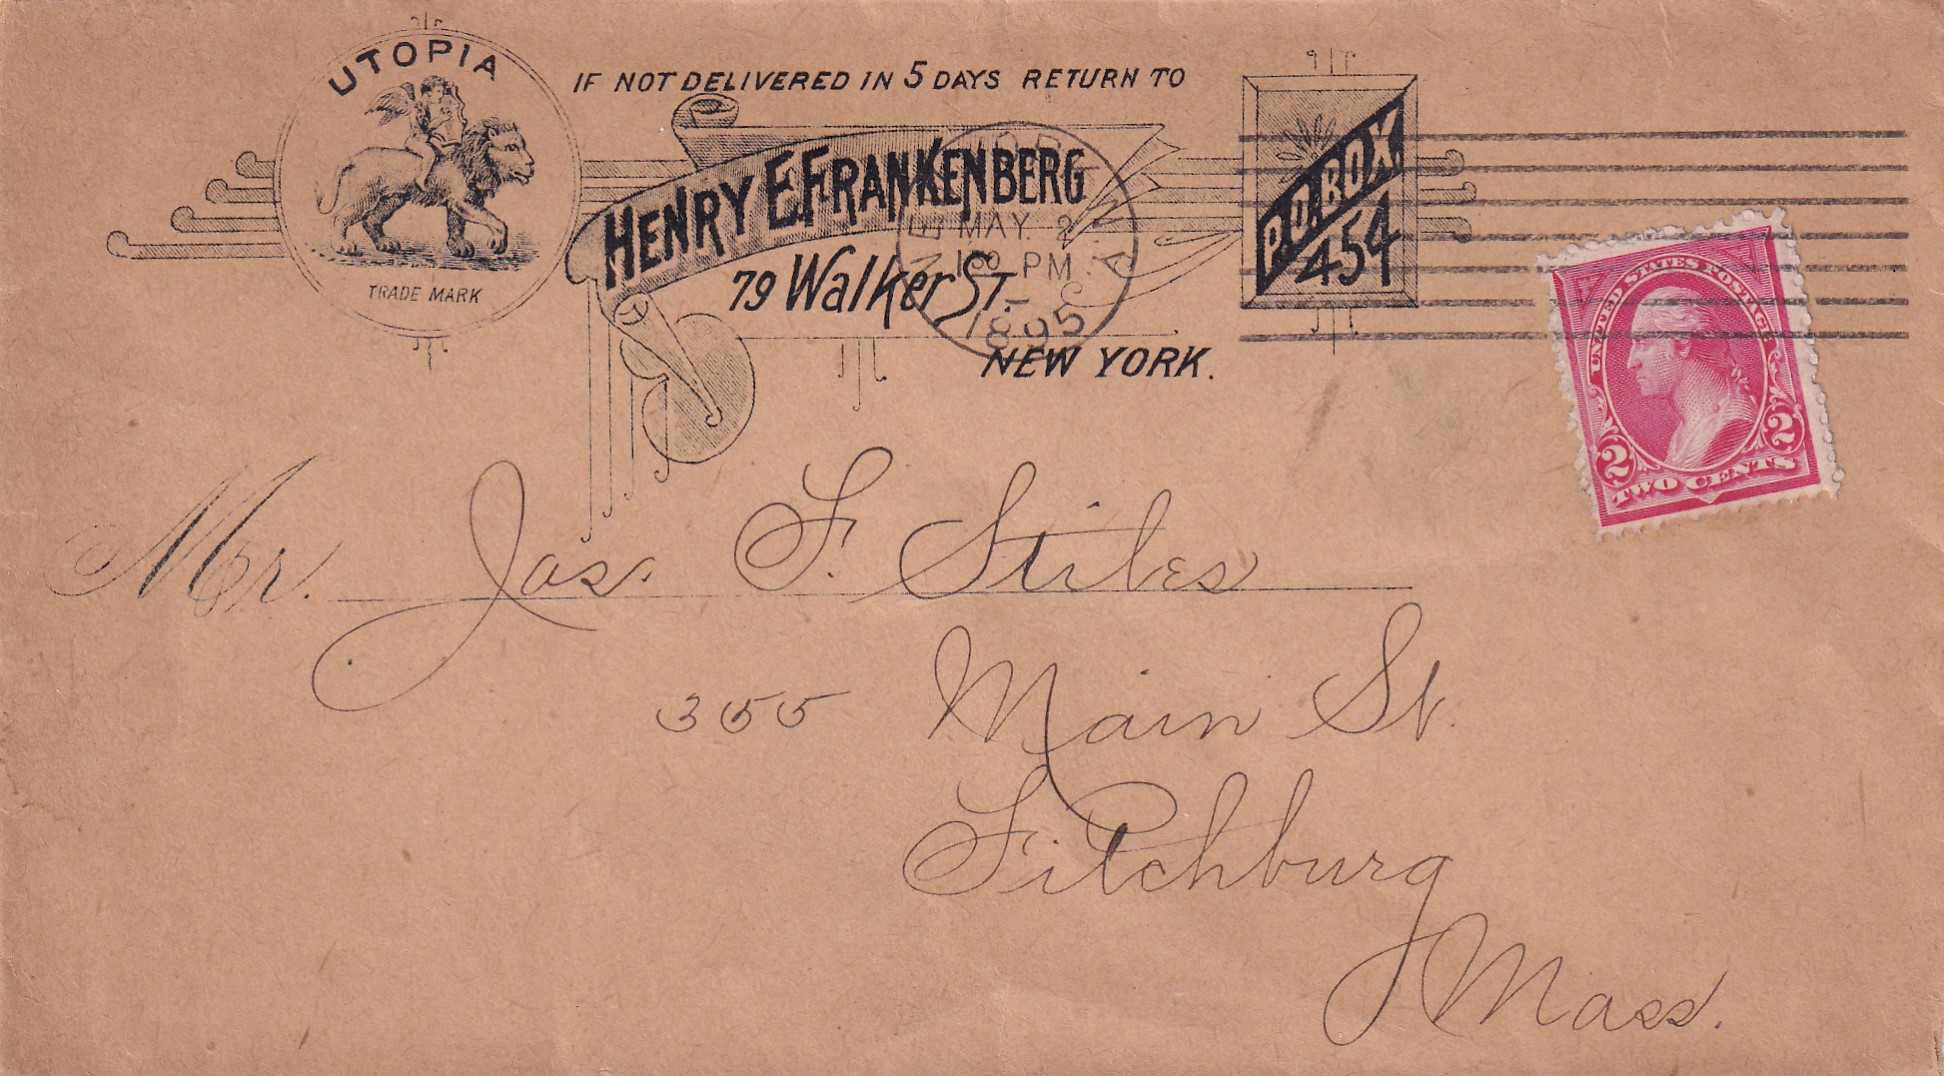 UTOPIA
TRADE MARK
IF NOT DELIVERED IN 5 DAYS RETURN TO
HENRY E. FRANKENBERG
79 Walker ST.
NEW YORK.
P.O. BOX
454
MAY. 2
1 30 PM
1895
UNITED STATES POSTAGE
2 2
TWO CENTS
Mr. Jas. F. Stiles
355 Main St.
Fitchburg
Mass.